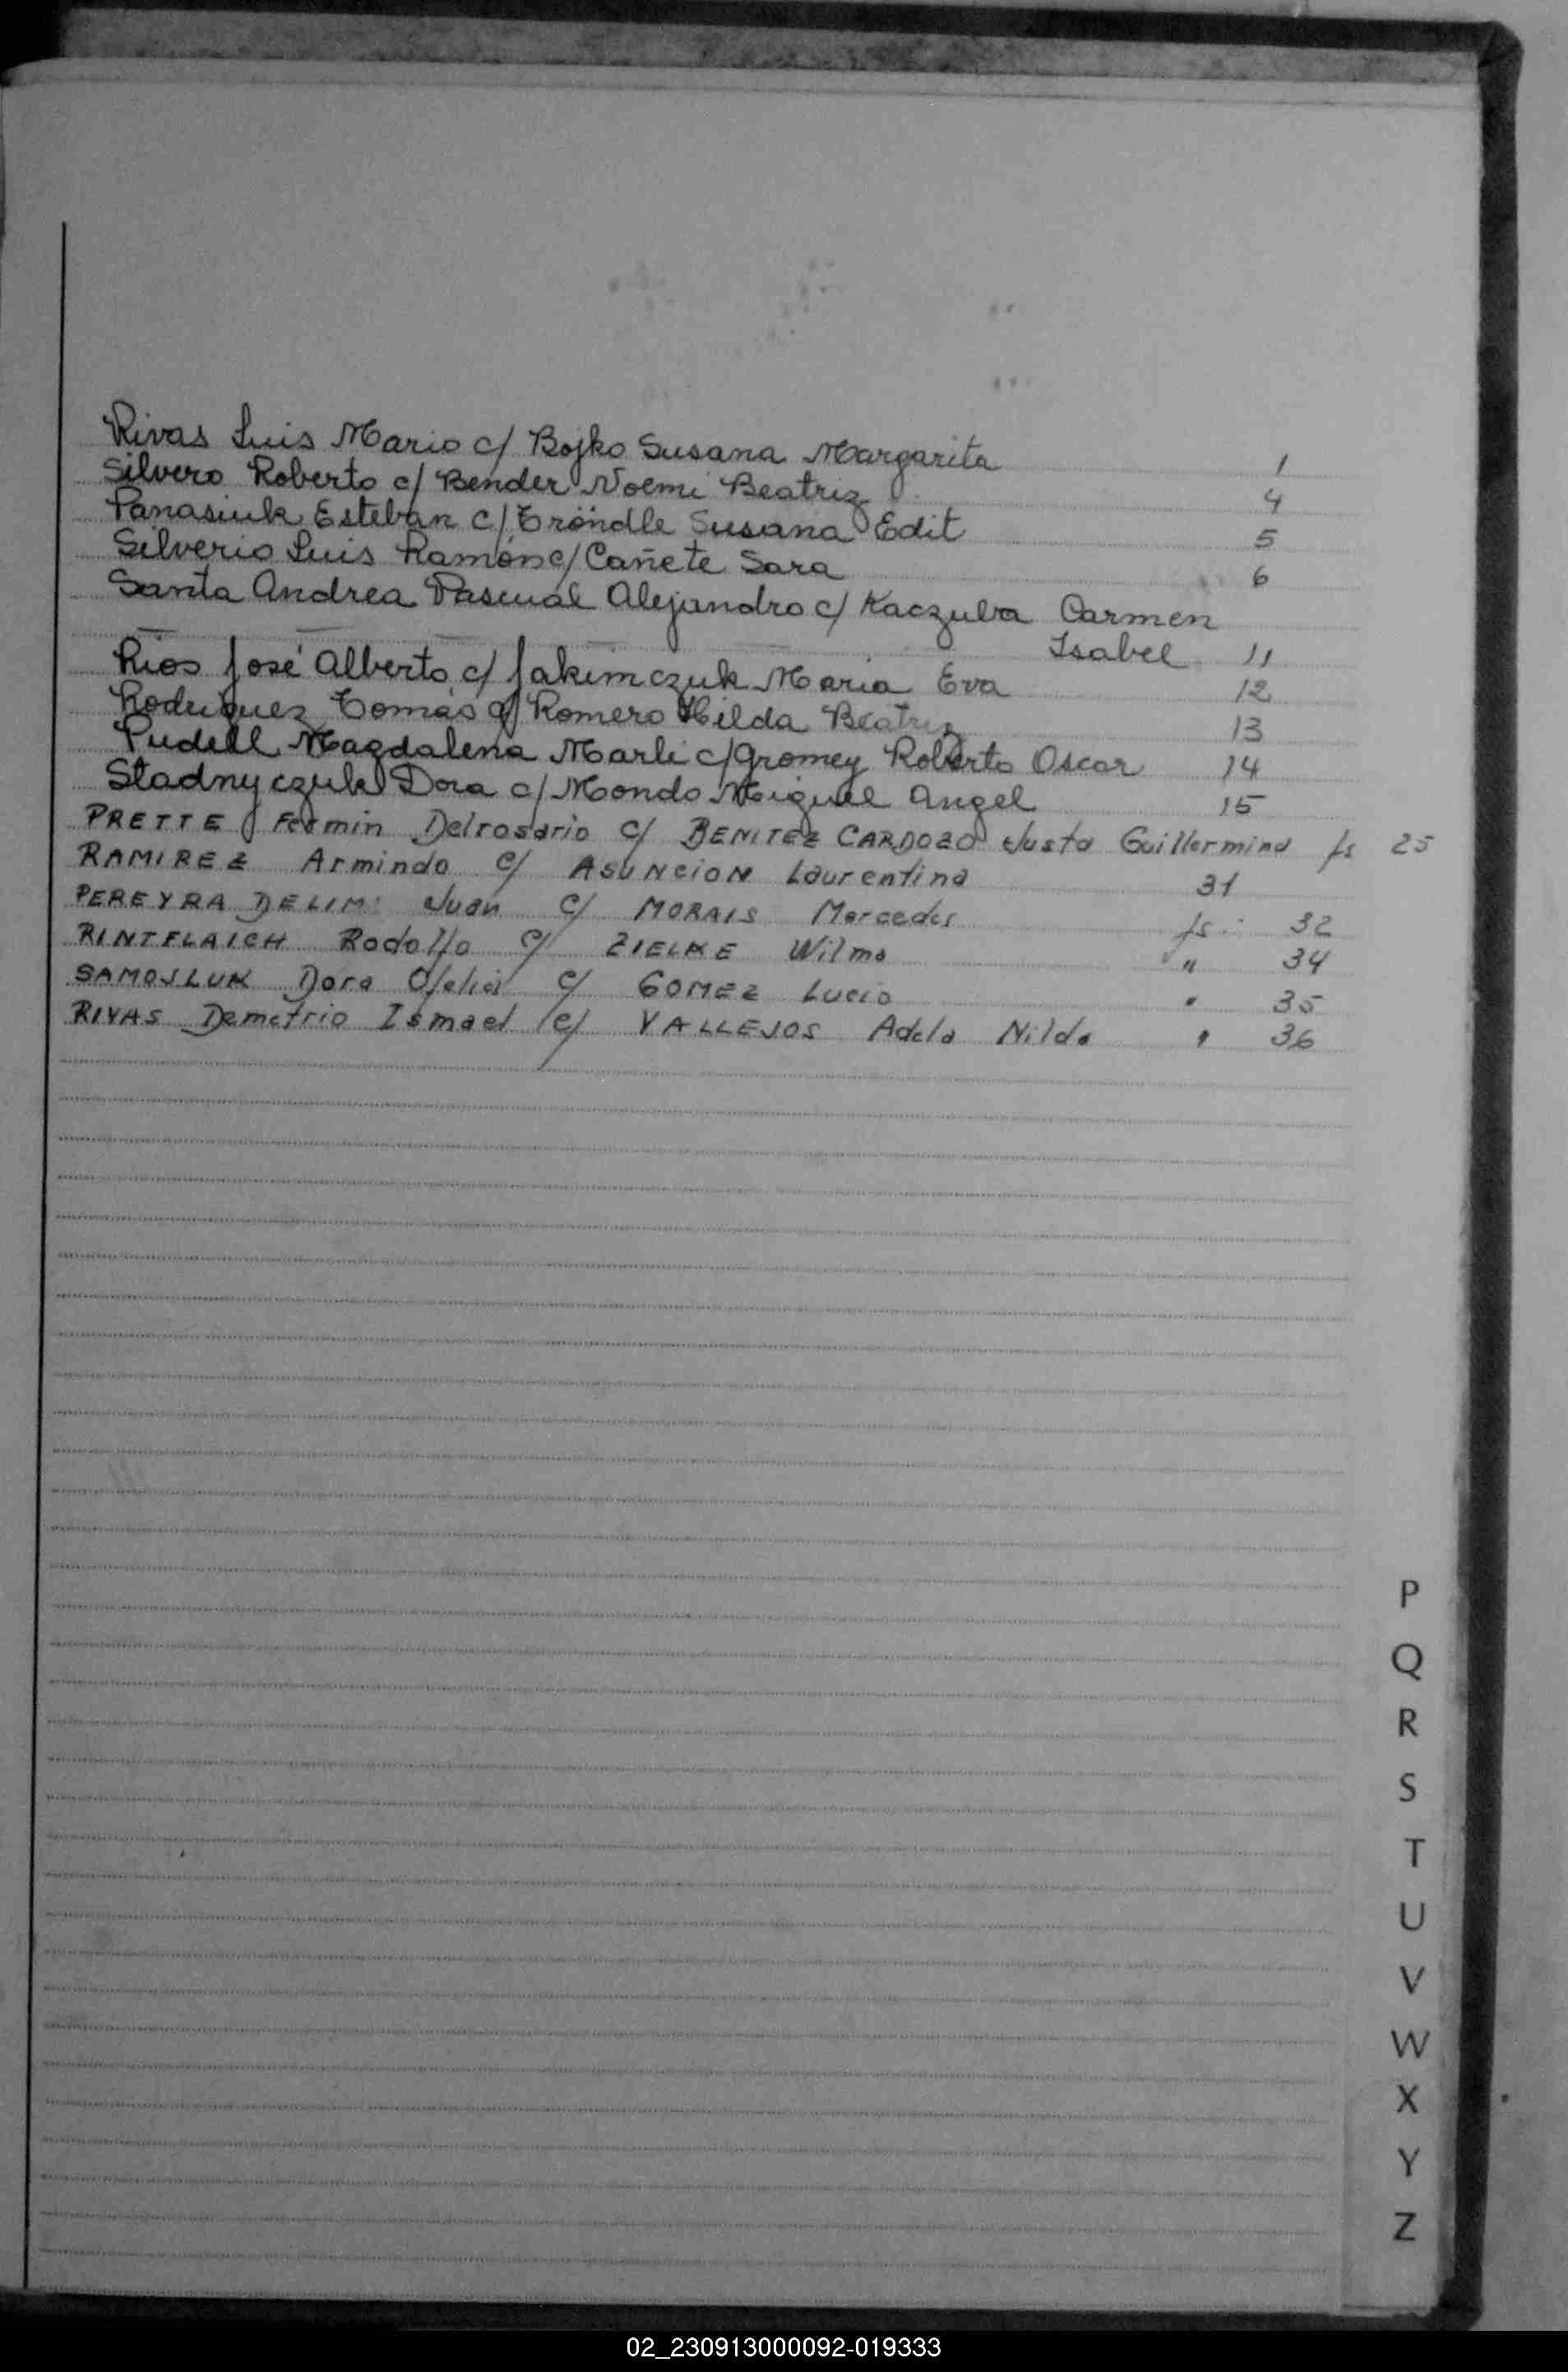 Rivas Luis Mario c/ Bojko Susana Margarita 1
Silvero Roberto c/ Bender Noemi Beatriz 4
Panasiuk Esteban c/ Tröndle Susana Edit 5
Silverio Luis Ramón c/ Cañete Sara 6
Santa Andrea Pascual Alejandro c/ Kaczuba Carmen
Isabel 11
Rios José Alberto c/ Jakimczuk Maria Eva 12
Rodriguez Tomás c/ Romero Hilda Beatriz 13
Pudell Magdalena Marli c/ Gromey Roberto Oscar 14
Stadnyczuk Dora c/ Mondo Miguel Angel 15
PRETTE Fermin Delrosario c/ BENITEZ CARDOZO Justa Guillermina fs 25
RAMIREZ Armindo c/ ASUNCION Laurentina 31
PEREYRA DELIM: Juan c/ MORAIS Mercedes fs: 32
RINTFLAICH Rodolfo c/ ZIELKE Wilma " 34
SAMOJLUK Dora Ofelia c/ GOMEZ Lucio " 35
RIVAS Demetrio Ismael c/ VALLEJOS Adela Nilda " 36
P
Q
R
S
T
U
V
W
X
Y
Z
02_230913000092-019333